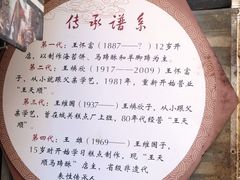 传承谱系
第一代：王怀富（1887——？）12岁开
店，以制作海苔饼、马蹄酥和羊脚蹄为主。
第二代：王焕欣（1917——2009）王怀富
子，从小就跟父亲学艺，1981年，重新开始营业
“王天顺”。
第三代：王维国（1937——）王焕欣子，从小跟父
亲学艺，曾在城关糕点厂上班，80年代经营“王天
顺”。
第四代：王 雄（1969——）王维国子，
15岁时开始学习糕点制作，现“王天
顺马蹄酥”店主，省级非遗代
表性传承人